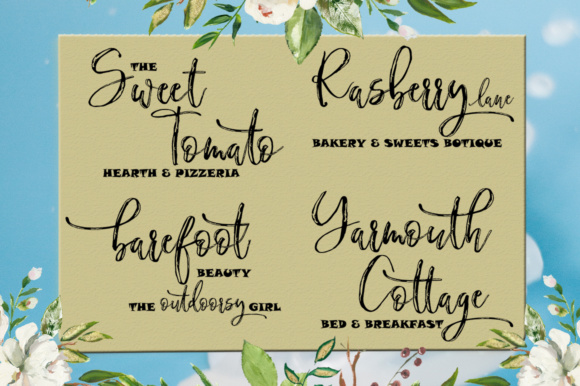 THE
Sweet
Tomato
HEARTH & PIZZERIA
Rasberry lane
BAKERY & SWEETS BOTIQUE
barefoot
BEAUTY
THE outdoorsy GIRL
Yarmouth
Cottage
BED & BREAKFAST